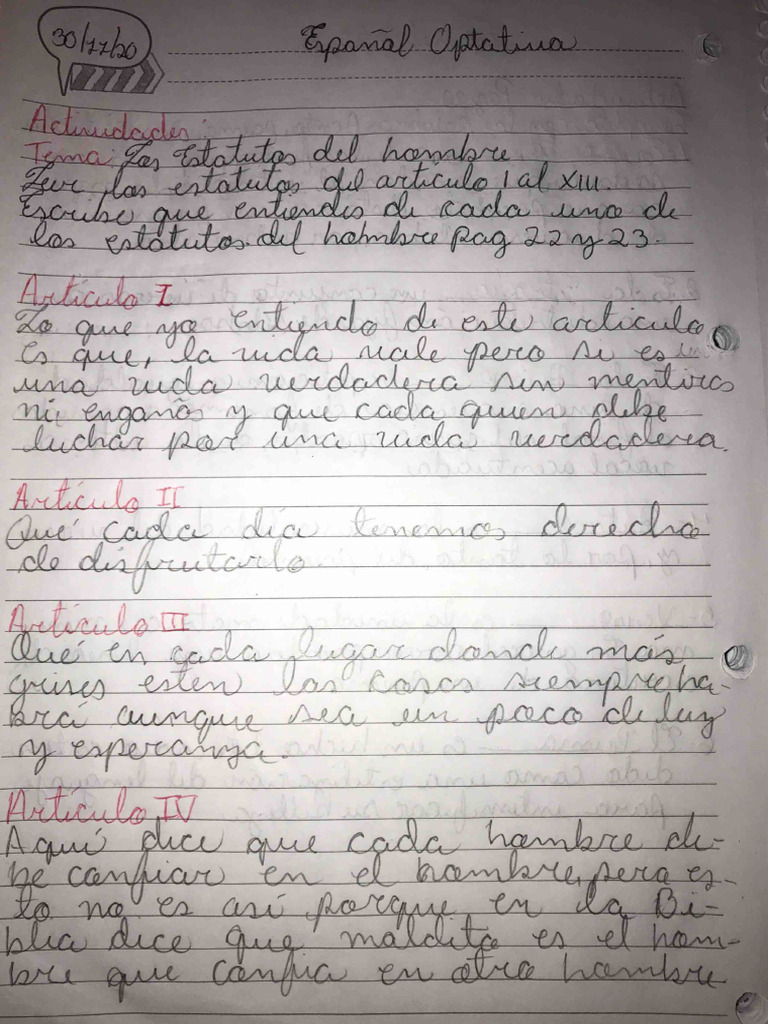 30/11/20
Español Optativa
Actividades:
Tema: Los Estatutos del hombre
Leer los estatutos del articulo I al XIII.
Escribe que entiendes de cada uno de
los estatutos del hombre pag 22 y 23.
Artículo I
Lo que yo entiendo de este articulo
es que, la vida vale pero si es
una vida verdadera sin mentiras
ni engaños y que cada quien debe
luchar por una vida verdadera.
Artículo II
Qué cada día tenemos derecho
de disfrutarlo
Artículo III
Qué en cada lugar donde más
grises esten las cosas siempre ha-
brá aunque sea un poco de luz
y esperanza.
Artículo IV
Aquí dice que cada hombre de-
be confiar en el hombre, pero es-
to no es así porque en la Bi-
blia dice que maldito es el hom-
bre que confia en otro hombre